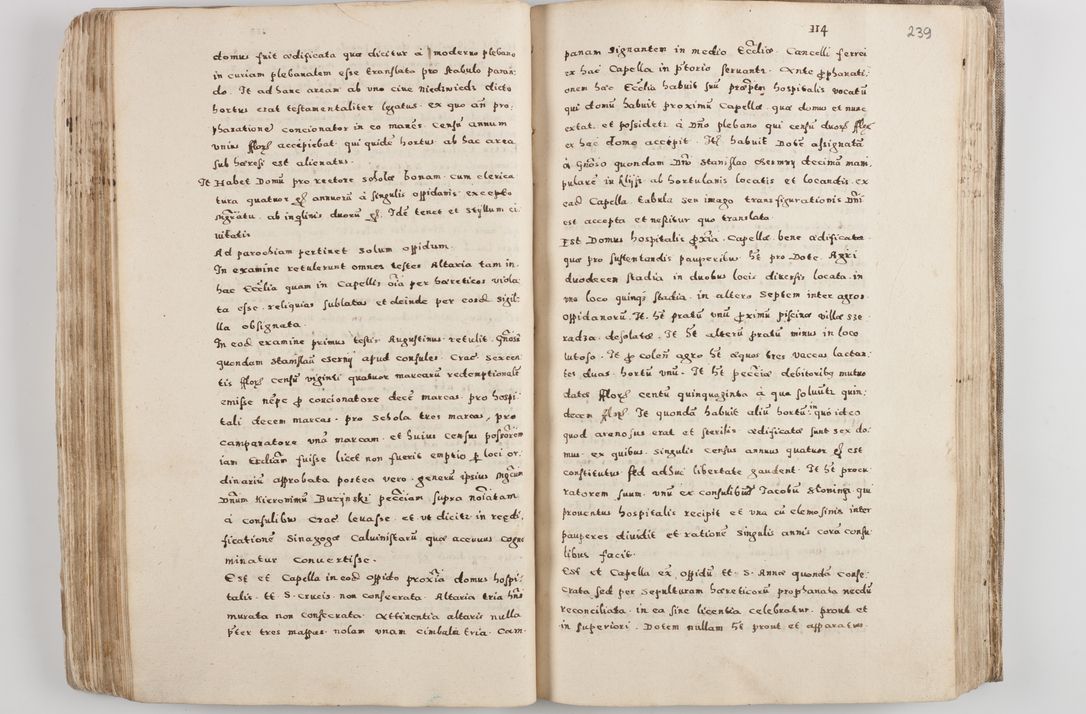 domus fuit ædificata quæ dicitur à moderno plebano
in curiam plebanalem esse translata pro stabulo paran
do. It ad hanc aream ab uno cive Niediwiedz dicto
hortus erat testamentaliter legatus. ex quo añ pro
phanatione concionator in eo manẽs censũ annum
vnius fflorẽ accepiebat. qui quidẽ hortus ab hac area
sub hæresi est alienatus.
It Habet Domũ pro rectore scholæ bonam. cum clerica
tura quatuor gͬ annuorũ à singulis oppidanis excepto
ab inqlinis duorũ gͬ. Idẽ tenet et
uitatis
Ad parochiam pertinet solum oppidum.
In examine retulerunt omnes testes Altaria tam in
hac Ecclia quam in Capellis oĩa per hæreticos viola
ta esse. reliquias sublatas et deinde per eosd sigil
lla obsignata.
In eod examine primus testis Augustinus retulit. Gñosũ
quondam Stanislaũ Czerny apud consules Crac sexcen
tis fflorẽ censũ viginti quatuor marcarũ redemptionalẽ
emisse nẽpe p concionatore decẽ marcas. pro hospi
tali decem marcas. pro schola tres marcas, pro
campanatore vnã marcam. et huius census
iam fuisse licet non fuerit emptio p loci or
dinariũ approbata postea vero generũ ipsius
Dñum Hieronimũ Buzÿnski pecciam supra noĩatam
à consulibus Crac leuasse. et vt dicitr in reædi
ficationẽ Sinagogæ Caluinistarũ quæ aceruus cogno
minatur Convertisse.
Est et Capella in eod oppido proxĩa domus hospi
talis. tt S. crucis. non consecrata. Altaria tria hñs
murata non consecrata. Attinentia altaris nulla
pter tres mappas. nolam vnam cimbalũ tria. Cam

114
239
panam signantem in medio Eccliæ. Cancelli ferrei
ex hac Capella in ptorio seruantr. Ante pphanati
onem hæc Ecclia habuit suũ hospitalis vocatũ
qui domũ habuit proximũ Capellæ. quæ domus et nunc
extat. et possidetr à Dño plebano qui censũ duorũ fflor
ex hac domo accepit. It habuit Dotẽ assignatã
à Gñoso quondam Dño Stanislao Czerny decimã mani
pularẽ in ab hortulanis locatis et locandis. ex
ead Capella. tabula seu imago transfigurationis Dñi
est accepta et nescitur quo translata
Est Domus hospitalis pxĩa. Capellæ bene ædificata
quæ pro sustentandis pauperibus ht pro Dote. Agri
duodecem stadia in duobus locis diuersis locata. in
vno loco quinqȝ stadia. in altero Septem inter agros
oppidanorũ. It. ht pratũ vnũ pximũ piscinæ villæ Sze
radza. desolatæ. It ht alterũ pratũ minus in loco
lutoso. It p colenñ agro ht æquos tres vaccas lactan
tes duas. hortũ vnũ. It ht peccias debitoribus mutuo
datas fflorẽ centũ quinquaginta à qua soluũtr quin
decem fflorẽ. It quondã habuit aliũ hortũ. in quo ideo
quod arenosus erat et sterilis ædificatæ sunt sex do
mus. ex quibus singulis census annuus quatuor gͬ est
constitutus sed adhuc libertate gaudent. It ht procu
ratorem suum vnũ ex consulibus Jacobũ Slonina qui
prouentus hospitalis recipit et vna cũ elemosinis inter
pauperes diuidit et rationẽ singulis annis corã consu
libus facit.
Est et Capella ex oppidũ tt S. Annæ quondã conse
crata sed per sepulturam hæreticorũ prophanata necdũ
reconciliata. in ea sine licentia celebratur. prout et
in superiori. Dotem nullam ht prout et apparatus.